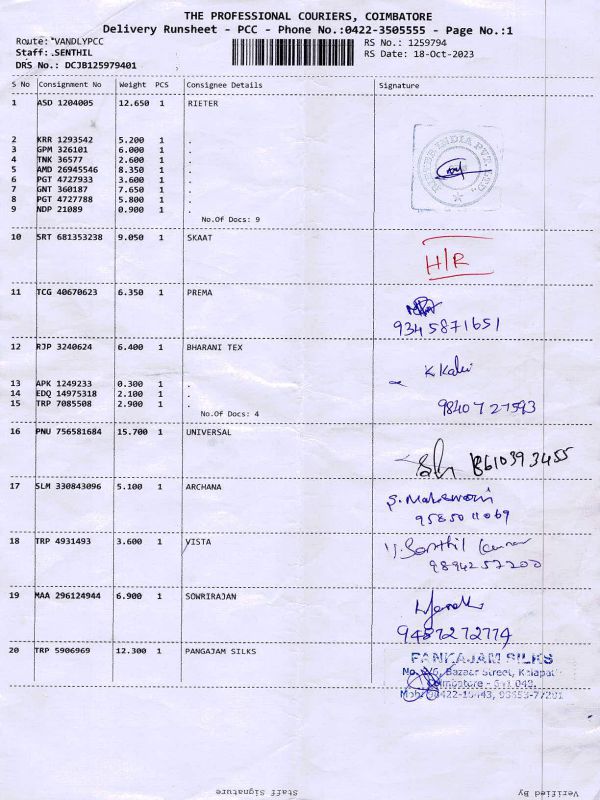 THE PROFESSIONAL COURIERS, COIMBATORE
Delivery Runsheet - PCC - Phone No.:0422-3505555 - Page No.:1
Route: *VANDLYPCC
RS No.: 1259794
Staff: .SENTHIL
RS Date: 18-Oct-2023
DRS No.: DCJB125979401
S No Consignment No Weight PCS Consignee Details Signature
1 ASD 1204005 12.650 1 RIETER
2 KRR 1293542 5.200 1 .
3 GPM 326101 6.000 1 .
4 TNK 36577 2.600 1 .
5 AMD 26945546 8.350 1 .
6 PGT 4727933 3.600 1 .
7 GNT 360187 7.650 1 .
8 PGT 4727788 5.800 1 .
9 NDP 21089 0.900 1 .
No.Of Docs: 9
10 SRT 681353238 9.050 1 SKAAT
H/R
11 TCG 40670623 6.350 1 PREMA
9345871651
12 RJP 3240624 6.400 1 BHARANI TEX
13 APK 1249233 0.300 1 .
14 EDQ 14975318 2.100 1 .
15 TRP 7085508 2.900 1 .
No.Of Docs: 4
16 PNU 756581684 15.700 1 UNIVERSAL
8610393455
17 SLM 330843096 5.100 1 ARCHANA
9585011069
18 TRP 4931493 3.600 1 VISTA
9894257200
19 MAA 296124944 6.900 1 SOWRIRAJAN
20 TRP 5906969 12.300 1 PANGAJAM SILKS
PANKAJAM SILKS
Bazaar Street,
Staff Signature
Verified By